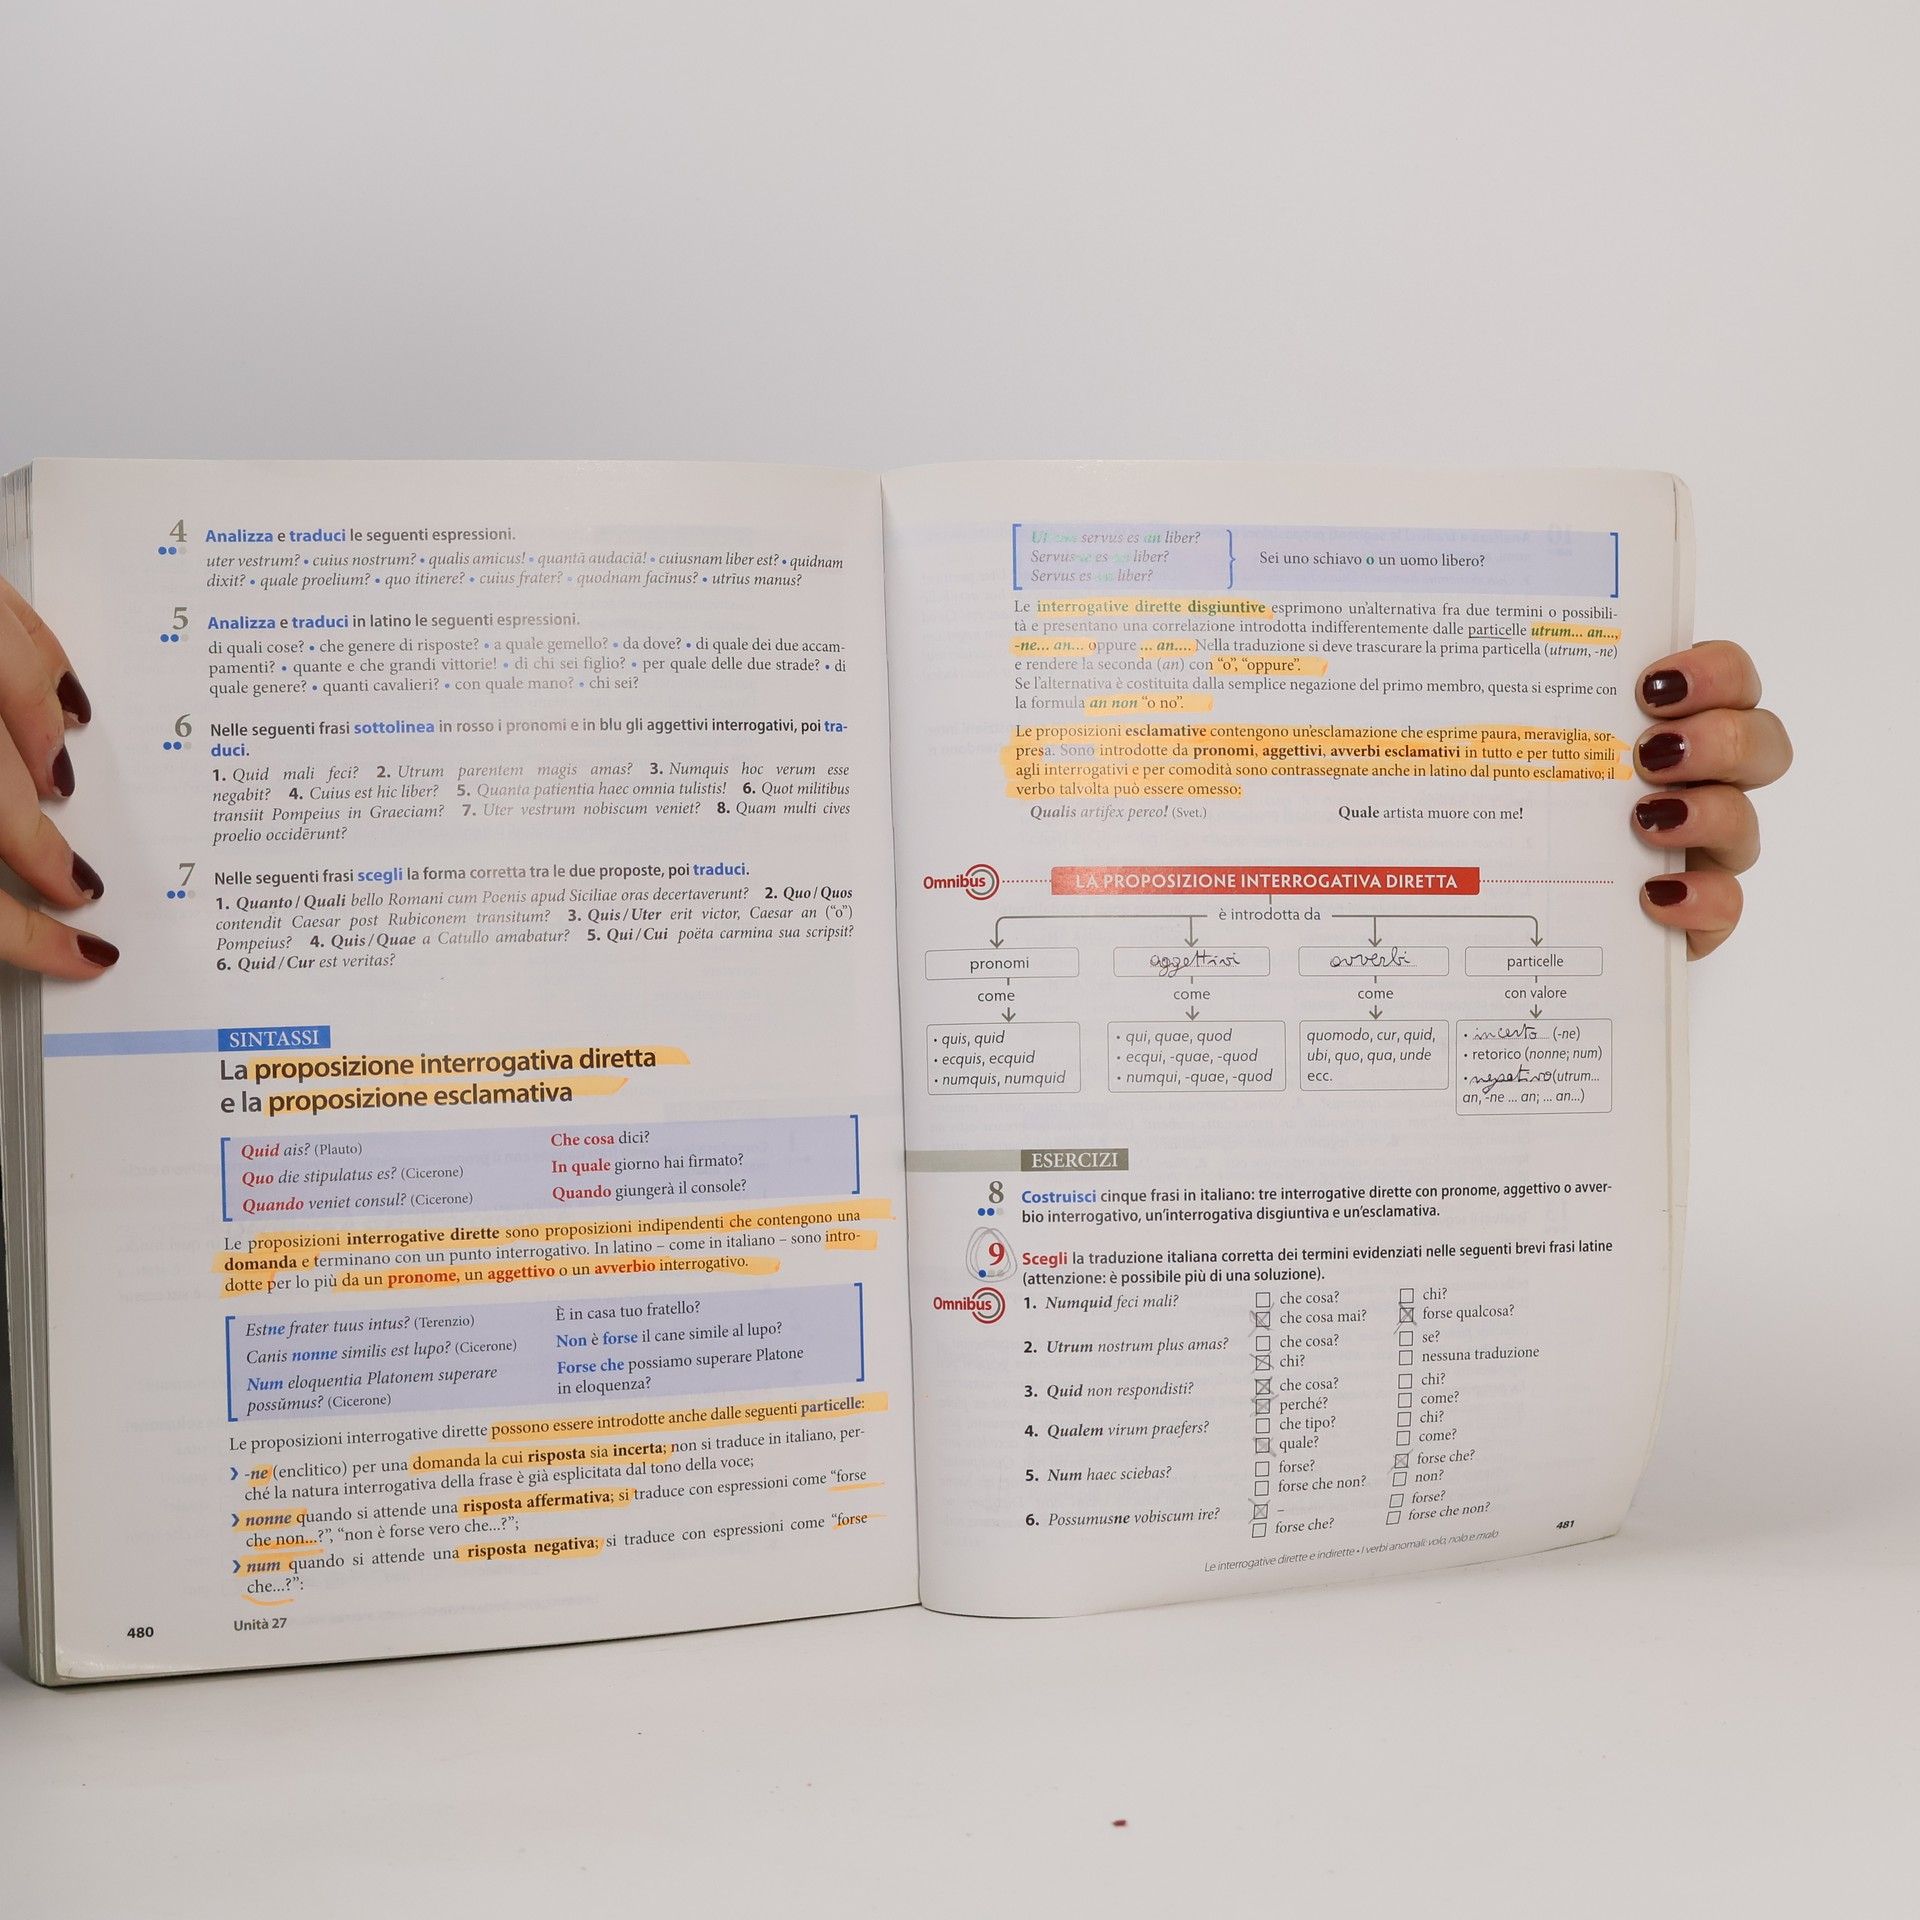 4 Analizza e traduci le seguenti espressioni.
uter vestrum? • cuius nostrum? • qualis amicus! • quantā audaciā! • cuiusnam liber est? • quidnam
dixit? • quale proelium? • quo itinere? • cuius frater? • quodnam facinus? • utrius manus?
5 Analizza e traduci in latino le seguenti espressioni.
di quali cose? • che genere di risposte? • a quale gemello? • da dove? • di quale dei due accam-
pamenti? • quante e che grandi vittorie! • di chi sei figlio? • per quale delle due strade? • di
quale genere? • quanti cavalieri? • con quale mano? • chi sei?
6 Nelle seguenti frasi sottolinea in rosso i pronomi e in blu gli aggettivi interrogativi, poi tra-
duci.
1. Quid mali feci? 2. Utrum parentem magis amas? 3. Numquis hoc verum esse
negabit? 4. Cuius est hic liber? 5. Quanta patientia haec omnia tulistis! 6. Quot militibus
transiit Pompeius in Graeciam? 7. Uter vestrum nobiscum veniet? 8. Quam multi cives
proelio occidērunt?
7 Nelle seguenti frasi scegli la forma corretta tra le due proposte, poi traduci.
1. Quanto / Quali bello Romani cum Poenis apud Siciliae oras decertaverunt? 2. Quo / Quos
contendit Caesar post Rubiconem transitum? 3. Quis / Uter erit victor, Caesar an (“o”)
Pompeius? 4. Quis / Quae a Catullo amabatur? 5. Qui / Cui poëta carmina sua scripsit?
6. Quid / Cur est veritas?
SINTASSI
La proposizione interrogativa diretta
e la proposizione esclamativa
Quid ais? (Plauto) Che cosa dici?
Quo die stipulatus es? (Cicerone) In quale giorno hai firmato?
Quando veniet consul? (Cicerone) Quando giungerà il console?
Le proposizioni interrogative dirette sono proposizioni indipendenti che contengono una
domanda e terminano con un punto interrogativo. In latino – come in italiano – sono intro-
dotte per lo più da un pronome, un aggettivo o un avverbio interrogativo.
Estne frater tuus intus? (Terenzio) È in casa tuo fratello?
Canis nonne similis est lupo? (Cicerone) Non è forse il cane simile al lupo?
Num eloquentia Platonem superare Forse che possiamo superare Platone
possŭmus? (Cicerone) in eloquenza?
Le proposizioni interrogative dirette possono essere introdotte anche dalle seguenti particelle:
› -ne (enclitico) per una domanda la cui risposta sia incerta; non si traduce in italiano, per-
ché la natura interrogativa della frase è già esplicitata dal tono della voce;
› nonne quando si attende una risposta affermativa; si traduce con espressioni come “forse
che non...?”, “non è forse vero che...?”;
› num quando si attende una risposta negativa; si traduce con espressioni come “forse
che...?”:
480 Unità 27
servus es an liber?
Servus es liber? Sei uno schiavo o un uomo libero?
Servus es liber?
Le interrogative dirette disgiuntive esprimono un’alternativa fra due termini o possibili-
tà e presentano una correlazione introdotta indifferentemente dalle particelle utrum... an...,
-ne... an... oppure ... an.... Nella traduzione si deve trascurare la prima particella (utrum, -ne)
e rendere la seconda (an) con “o”, “oppure”.
Se l’alternativa è costituita dalla semplice negazione del primo membro, questa si esprime con
la formula an non “o no”.
Le proposizioni esclamative contengono un’esclamazione che esprime paura, meraviglia, sor-
presa. Sono introdotte da pronomi, aggettivi, avverbi esclamativi in tutto e per tutto simili
agli interrogativi e per comodità sono contrassegnate anche in latino dal punto esclamativo; il
verbo talvolta può essere omesso:
Qualis artifex pereo! (Svet.) Quale artista muore con me!
Omnibus LA PROPOSIZIONE INTERROGATIVA DIRETTA
è introdotta da
pronomi aggettivi avverbi particelle
come come come con valore
• quis, quid
• ecquis, ecquid
• numquis, numquid
• qui, quae, quod
• ecqui, -quae, -quod
• numqui, -quae, -quod
quomodo, cur, quid,
ubi, quo, qua, unde
ecc.
• incerto (-ne)
• retorico (nonne; num)
• (utrum...
an, -ne ... an; ... an...)
ESERCIZI
8 Costruisci cinque frasi in italiano: tre interrogative dirette con pronome, aggettivo o avver-
bio interrogativo, un’interrogativa disgiuntiva e un’esclamativa.
9 Scegli la traduzione italiana corretta dei termini evidenziati nelle seguenti brevi frasi latine
(attenzione: è possibile più di una soluzione).
Omnibus
1. Numquid feci mali? che cosa? chi?
che cosa mai? forse qualcosa?
2. Utrum nostrum plus amas? che cosa? se?
chi? nessuna traduzione
3. Quid non respondisti? che cosa? chi?
perché? come?
4. Qualem virum praefers? che tipo? chi?
quale? come?
5. Num haec sciebas? forse? forse che?
forse che non? non?
6. Possumusne vobiscum ire? – forse?
forse che? forse che non?
Le interrogative dirette e indirette • I verbi anomali: volo, nolo e malo 481